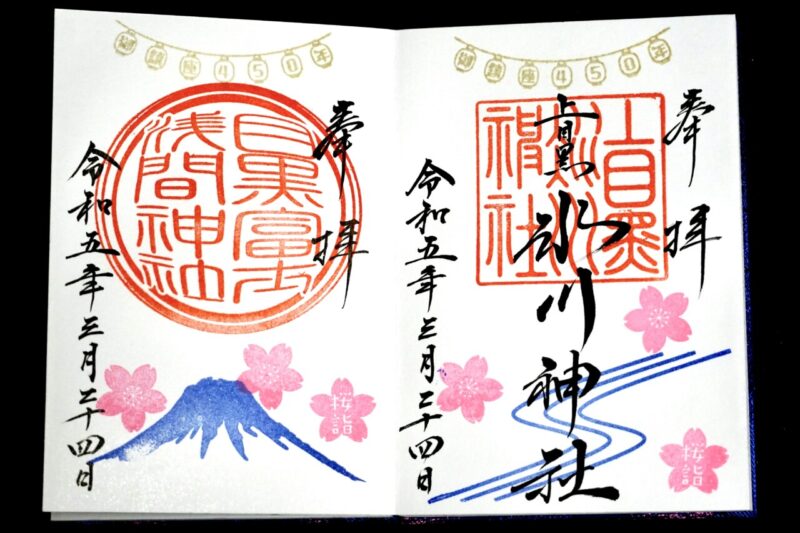 御鎮座450年
奉拝
上目黒
氷川神社
上目黒
氷川
神社
令和五年三月二十四日
桜詣
御鎮座450年
奉拝
目黒富士
浅間神社
令和五年三月二十四日
桜詣